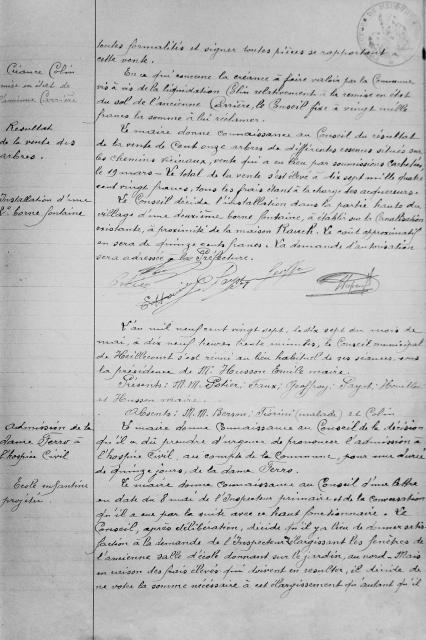 toutes formalités et signer toutes pièces se rapportant à
cette vente.
Créance Colin
mise en état de
l'ancienne Carrière
En ce qui concerne la créance à faire valoir par la Commune
vis à vis de la liquidation Colin relativement à la remise en état
du sol de l'ancienne Carrière, le Conseil fixe à vingt mille
francs la somme à lui réclamer.
Résultat
de la vente des
arbres.
Le maire donne connaissance au Conseil du résultat
de la vente de Cent onze arbres de différentes essences situés sur
les chemins vicinaux, vente qui a eu lieu par soumissions cachetées,
le 19 mars - Le total de la vente s'est élevé à dix sept mille
cent vingt francs, tous les frais étant à la charge des acquéreurs.
Installation d'une
2e borne fontaine
Le Conseil décide l'installation dans la partie haute du
village d'une deuxième borne fontaine, à établir sur la Canalisation
existante, à proximité de la maison Rauch. Le coût approximatif
en sera de quinze cents francs. La demande d'autorisation
sera adressée à la Préfecture.
L'an mil neuf cent vingt sept, le dix sept du mois de
mai, à dix neuf heures trente minutes, le Conseil municipal
de Heillecourt s'est réuni au lieu habituel de ses séances, sous
la présidence de Mr Husson Emile maire.
Présents: M.M. Potier, Faux, Geoffroy, Payot, Houillon
et Husson maire.
Absents: M.M. Berson, Fiorini (malade) et Colin
Admission de la
dame Ferro à
l'hospice Civil
Le maire donne connaissance au Conseil de la décision
qu'il a dû prendre d'urgence de prononcer l'admission à
l'hospice Civil, au compte de la Commune, pour une durée
de quinze jours, de la dame Ferro.
Ecole enfantine
projetée.
Le maire donne connaissance au Conseil d'une lettre
en date du 8 mai de l'Inspecteur primaire et de la conversation
qu'il a eue par la suite avec ce haut fonctionnaire. Le
Conseil, après délibération, décide qu'il y a lieu de donner satis-
faction à la demande de l'Inspecteur élargissant les fenêtres de
l'ancienne salle d'école donnant sur le jardin, au nord - Mais
en raison des frais élevés qui doivent en résulter, il décide de
ne voter la somme nécessaire à cet élargissement qu'autant qu'il